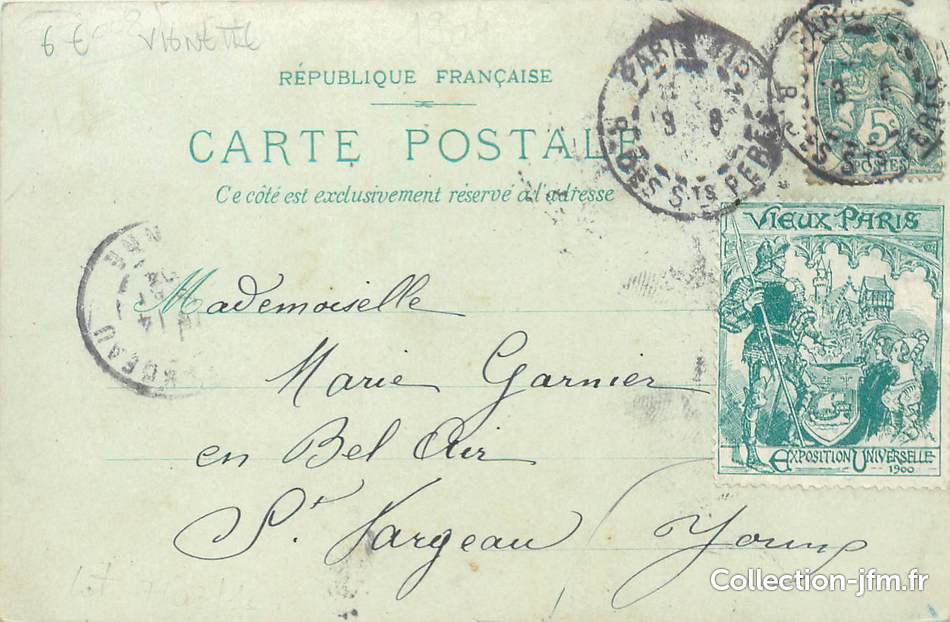 6 € VIGNETTE
RÉPUBLIQUE FRANÇAISE
CARTE POSTALE
Ce côté est exclusivement réservé à l'adresse
PARIS
R. DES Sts PERES
PARIS
R. DES Sts PERES
5c
POSTES
VIEUX PARIS
EXPOSITION UNIVERSELLE
1900
Mademoiselle
Marie Garnier
en Bel Air
St Fargeau (Yonne
Collection-jfm.fr